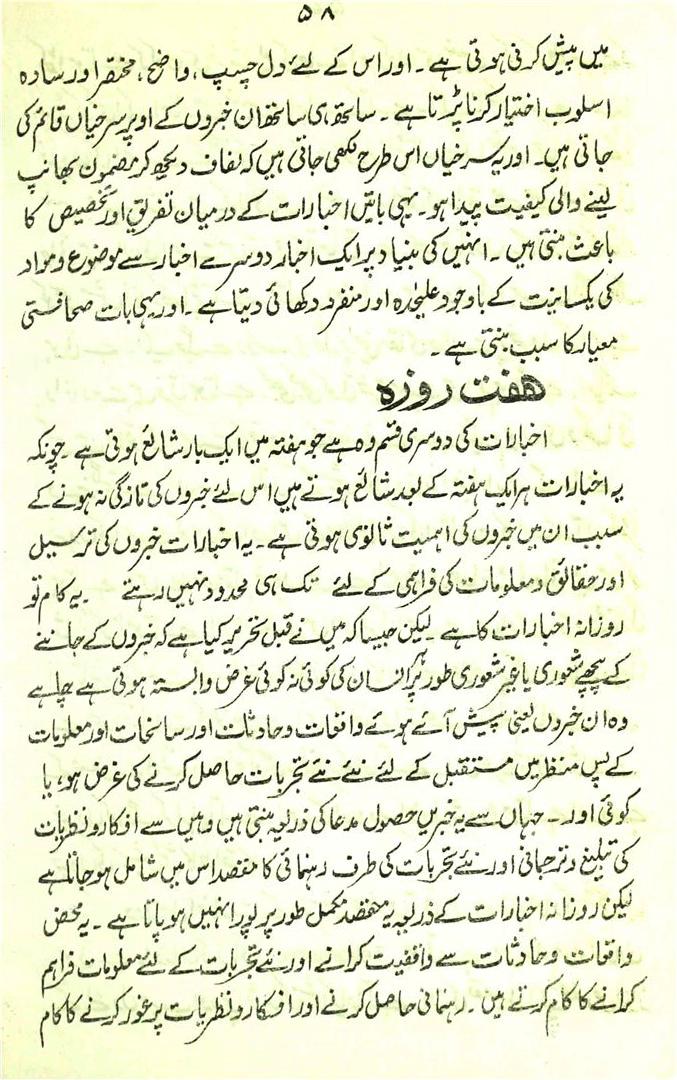 ۵۸
میں پیش کرنی ہوتی ہے۔ اور اس کے لئے دل چسپ، واضح، مختصر اور سادہ
اسلوب اختیار کرنا پڑتا ہے۔ ساتھ ہی ساتھ ان خبروں کے اوپر سرخیاں قائم کی
جاتی ہیں۔ اور یہ سرخیاں اس طرح لکھی جاتی ہیں کہ لفاف دیکھ کر مضمون بھانپ
لینے والی کیفیت پیدا ہو۔ یہی باتیں اخبارات کے درمیان تفریق اور تخصیص کا
باعث بنتی ہیں۔ انہیں کی بنیاد پر ایک اخبار دوسرے اخبار سے موضوع و مواد
کی یکسانیت کے باوجود علیحٰدہ اور منفرد دکھائی دیتا ہے۔ اور یہی بات صحافستی
معیار کا سبب بنتی ہے۔
ہفت روزہ
اخبارات کی دوسری قسم وہ ہے جو ہفتہ میں ایک بار شائع ہوتی ہے۔ چونکہ
یہ اخبارات ہر ایک ہفتہ کے بعد شائع ہوتے ہیں اس لئے خبروں کی تازگی نہ ہونے کے
سبب ان میں خبروں کی اہمیت ثانوی ہوتی ہے۔ یہ اخبارات خبروں کی ترسیل
اور حقائق و معلومات کی فراہمی کے لئے تک ہی محدود نہیں رہتے ۔ یہ کام تو
روزانہ اخبارات کا ہے۔ لیکن جیسا کہ میں نے قبل تحریر کیا ہے کہ خبروں کے جاننے
کے پیچھے شعوری یا غیر شعوری طور پر انسان کی کوئی نہ کوئی غرض وابستہ ہوتی ہے چاہے
وہ ان خبروں یعنی پیش آئے ہوئے واقعات و حادثات اور سانحات اور معلومات
کے پس منظر میں مستقبل کے لئے نئے نئے تجربات حاصل کرنے کی غرض ہو، یا
کوئی اور۔ جہاں سے یہ خبریں حصول مدعا کی ذریعہ بنتی ہیں وہیں سے افکار و نظریات
کی تبلیغ و ترجمانی اور نئے تجربات کی طرف رہنمائی کا مقصد اس میں شامل ہو جاتا ہے
لیکن روزانہ اخبارات کے ذریعہ یہ مقصد مکمل طور پر پورا نہیں ہو پاتا ہے۔ یہ محض
واقعات و حادثات سے واقفیت کرانے اور نئے تجربات کے لئے معلومات فراہم
کرانے کا کام کرتے ہیں۔ رہنمائی حاصل کرنے اور افکار و نظریات پر غور کرنے کا کام